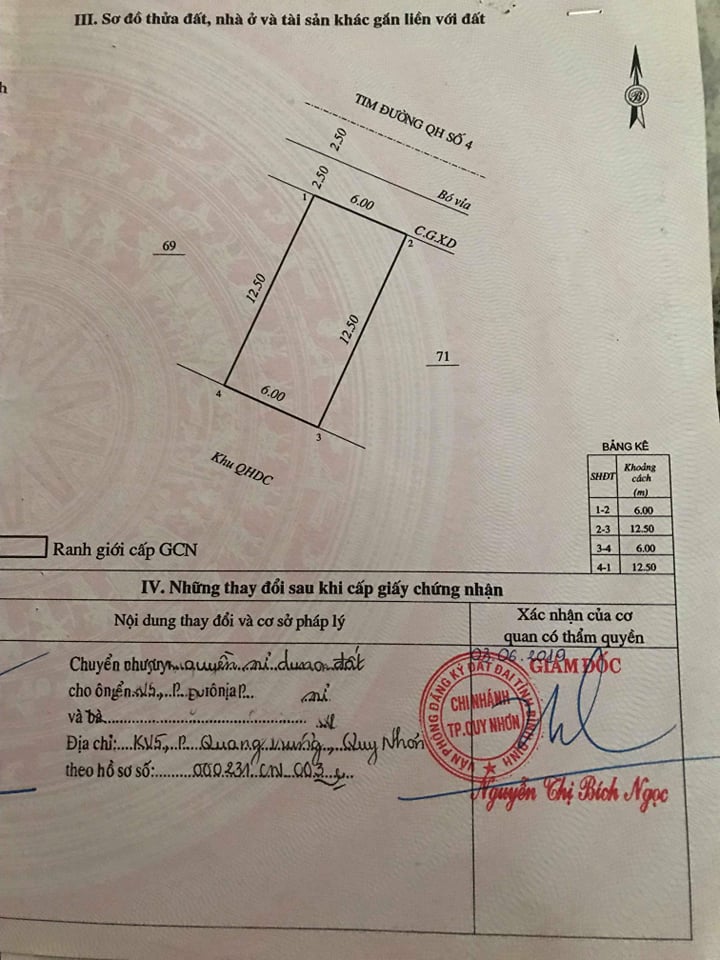 III. Sơ đồ thửa đất, nhà ở và tài sản khác gắn liền với đất
h
B
TIM ĐƯỜNG QH SỐ 4
2.50
Bó vỉa
2.50
1
6.00
C.G.XD
2
69
12.50
12.50
71
4
6.00
3
Khu QHDC
BẢNG KÊ
SHĐT Khoảng cách (m)
1-2 6.00
2-3 12.50
3-4 6.00
4-1 12.50
Ranh giới cấp GCN
IV. Những thay đổi sau khi cấp giấy chứng nhận
Nội dung thay đổi và cơ sở pháp lý
Xác nhận của cơ
quan có thẩm quyền
Chuyển đất
cho
và bà
Địa chỉ: KV5, P. Quang Quy Nhơn
theo hồ sơ số: 000231.CN.003
03.06.2019
GIÁM ĐỐC
VĂN PHÒNG ĐĂNG KÝ ĐẤT ĐAI TỈNH BÌNH ĐỊNH
CHI NHÁNH
TP.QUY NHƠN
Nguyễn Thị Bích Ngọc